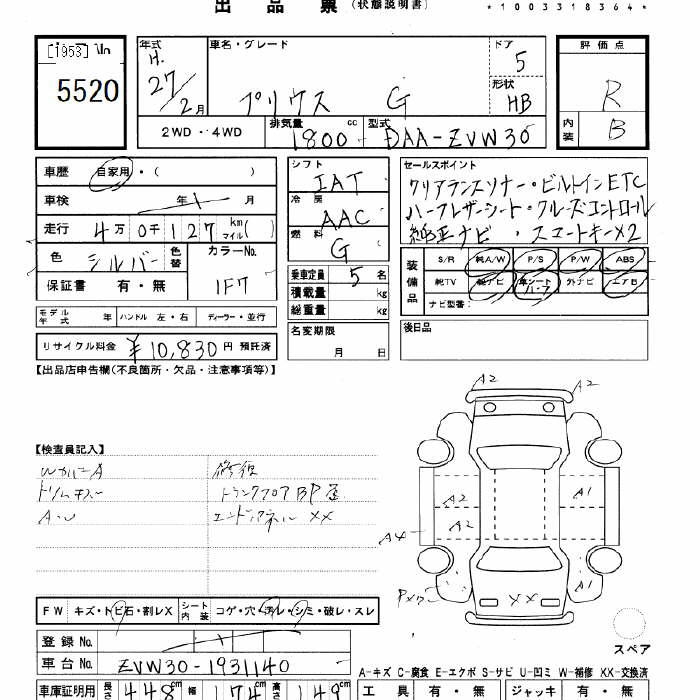 出品票 (状態説明書) *1003318364*
[1953] 5520
年式 H. 27/2月 車名・グレード プリウス G ドア 5 形状 HB
評価点 R 内装 B
2WD・4WD 排気量 1800 cc 型式 DAA-ZVW30
車歴 自家用・( )
車検 年 月
走行 4万0千127km マイル( )
色 シルバー 色替 カラーNo. 1F7
保証書 有・無
シフト IAT
冷房 AAC
燃料 G
乗車定員 5名
積載量 kg
総重量 kg
セールスポイント
クリアランスソナー・ビルトインETC
ハーフレザーシート・クルーズコントロール
純正ナビ・スマートキー×2
装備品 S/R 純A/W P/S P/W ABS
純TV 純ナビ 革シート ハーフ 外ナビ エアB
ナビ型番:
モデル年式 年 ハンドル 左・右 ディーラー・並行
リサイクル料金 ¥10,830円 預託済
名変期限 月 日
後日品
【出品店申告欄(不良箇所・欠品・注意事項等)】
【検査員記入】
修復
トランクフロアBP歪
エンドパネル XX
A2 A2
A2 A1
A4 A2
A1
XX
FW キズ・トビ石・割レX シート内装 コゲ・穴・汚レ・シミ・破レ・スレ
スペア
登録No.
車台No. ZVW30-1931140
A-キズ C-腐食 E-エクボ S-サビ U-凹ミ W-補修 XX-交換済
車庫証明用 長さ 448cm 幅 174cm 高さ 149cm 工具 有・無 ジャッキ 有・無